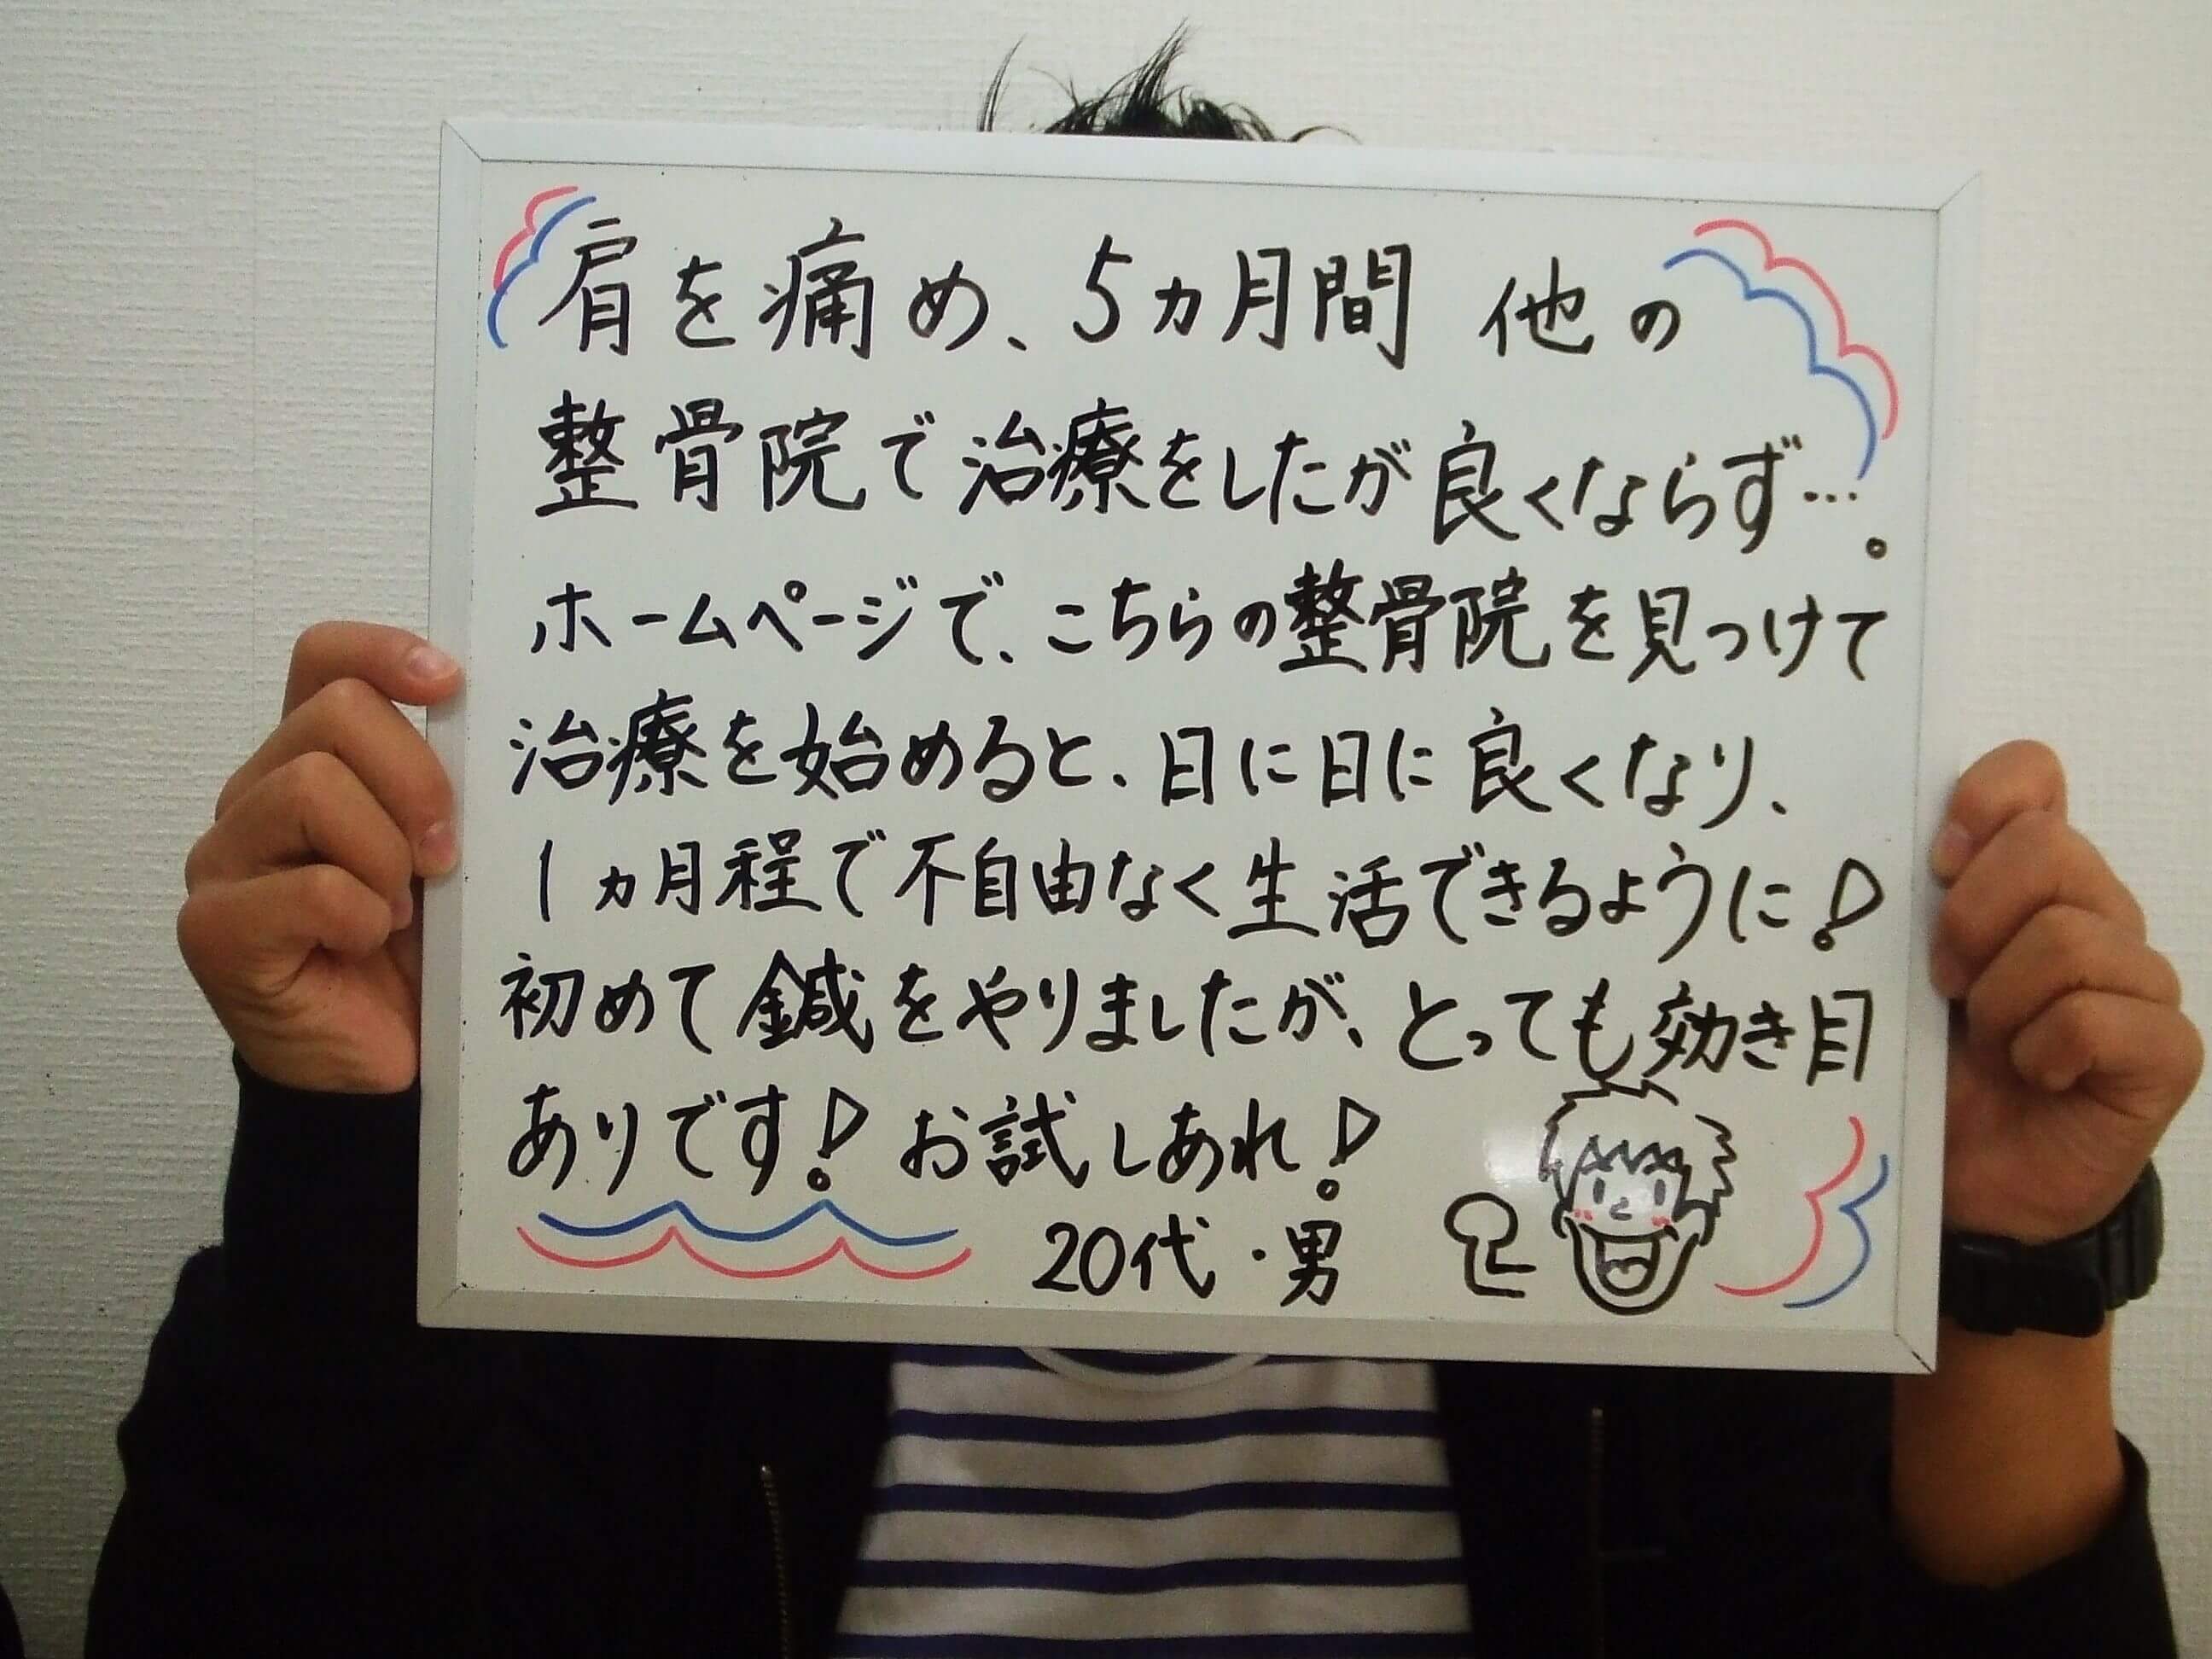 肩を痛め、5ヵ月間 他の
整骨院で治療をしたが良くならず…。
ホームページで、こちらの整骨院を見つけて
治療を始めると、日に日に良くなり、
1ヵ月程で不自由なく生活できるように!
初めて鍼をやりましたが、とっても効き目
ありです! お試しあれ!
20代・男